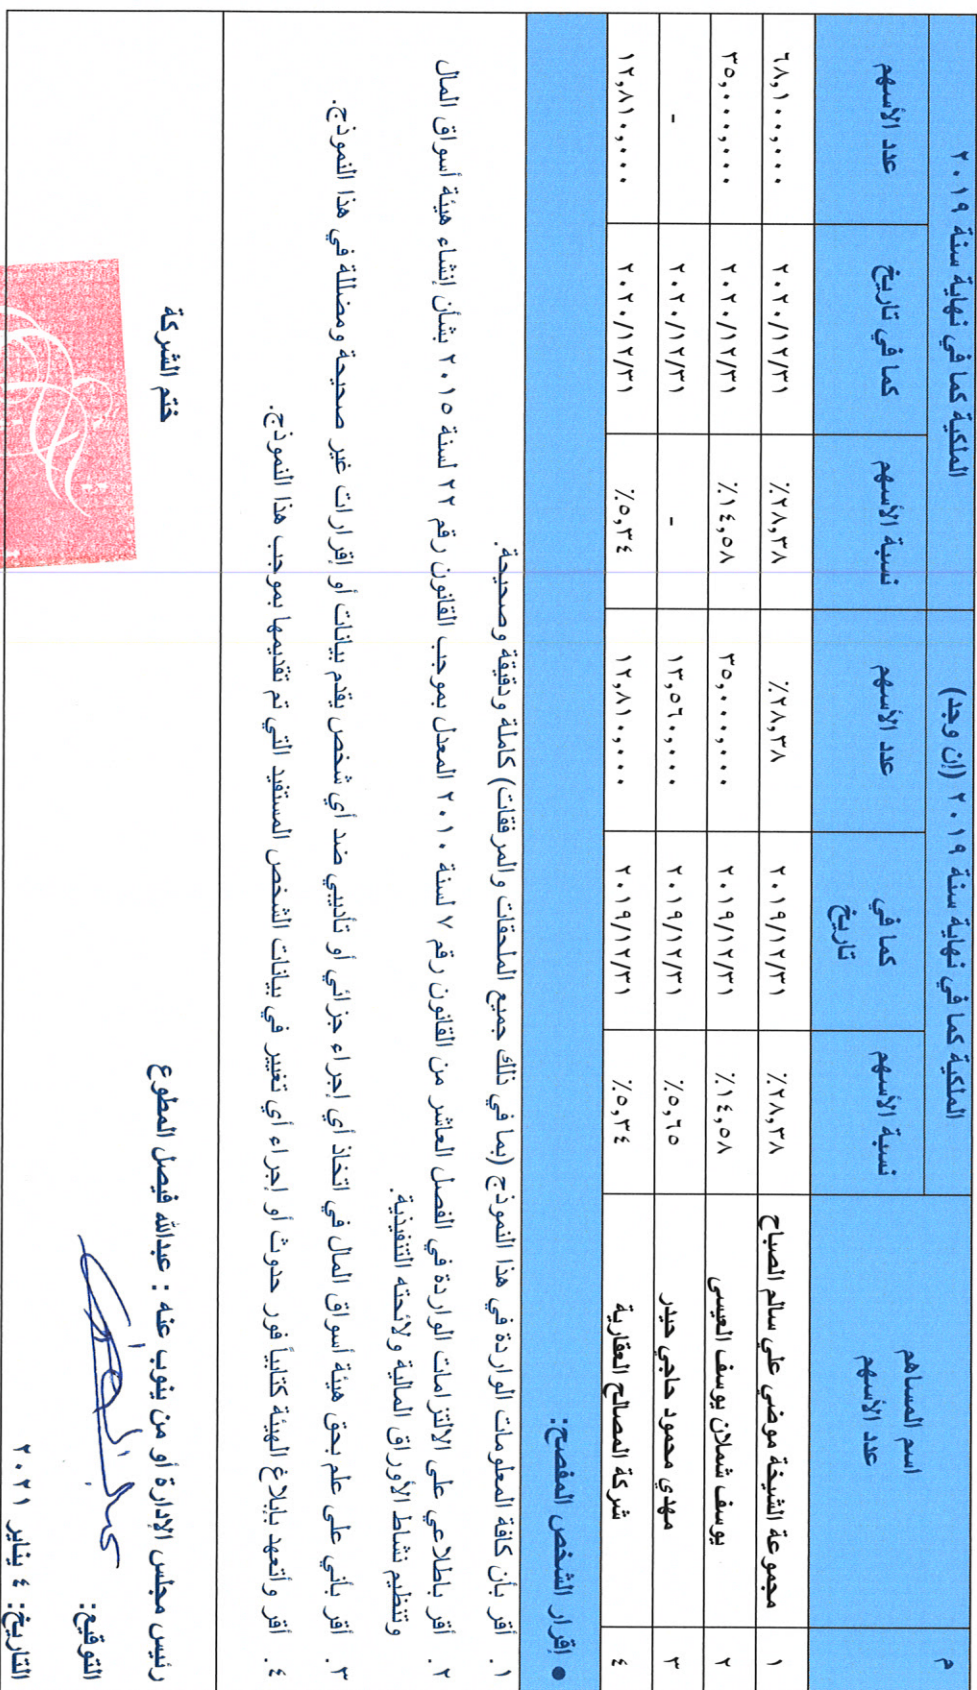 م
اسم المساهم
عدد الأسهم
الملكية كما في نهاية سنة ٢٠١٩ (إن وجد)
الملكية كما في نهاية سنة ٢٠١٩
نسبة الأسهم
كما في تاريخ
عدد الأسهم
نسبة الأسهم
كما في تاريخ
عدد الأسهم
١ مجموعة الشيخة موضي علي سالم الصباح ٪٢٨,٣٨ ٢٠١٩/١٢/٣١ ٪٢٨,٣٨ ٪٢٨,٣٨ ٢٠٢٠/١٢/٣١ ٦٨,١٠٠,٠٠٠
٢ يوسف شملان يوسف العيسى ٪١٤,٥٨ ٢٠١٩/١٢/٣١ ٣٥,٠٠٠,٠٠٠ ٪١٤,٥٨ ٢٠٢٠/١٢/٣١ ٣٥,٠٠٠,٠٠٠
٣ مهدي محمود حاجي حيدر ٪٥,٦٥ ٢٠١٩/١٢/٣١ ١٣,٥٦٠,٠٠٠ - ٢٠٢٠/١٢/٣١ -
٤ شركة المصالح العقارية ٪٥,٣٤ ٢٠١٩/١٢/٣١ ١٢,٨١٠,٠٠٠ ٪٥,٣٤ ٢٠٢٠/١٢/٣١ ١٢,٨١٠,٠٠٠
• إقرار الشخص المفصح:
١. أقر بأن كافة المعلومات الواردة في هذا النموذج (بما في ذلك جميع الملحقات والمرفقات) كاملة ودقيقة وصحيحة.
٢. أقر باطلاعي على الالتزامات الواردة في الفصل العاشر من القانون رقم ٧ لسنة ٢٠١٠ المعدل بموجب القانون رقم ٢٢ لسنة ٢٠١٥ بشأن إنشاء هيئة أسواق المال
وتنظيم نشاط الأوراق المالية ولائحته التنفيذية.
٣. أقر بأني على علم بحق هيئة أسواق المال في اتخاذ أي إجراء جزائي أو تأديبي ضد أي شخص يقدم بيانات أو إقرارات غير صحيحة ومضللة في هذا النموذج.
٤. أقر وأتعهد بإبلاغ الهيئة كتابياً فور حدوث أو إجراء أي تغيير في بيانات الشخص المستفيد التي تم تقديمها بموجب هذا النموذج.
رئيس مجلس الإدارة أو من ينوب عنه : عبدالله فيصل المطوع
ختم الشركة
التوقيع:
التاريخ: ٤ يناير ٢٠٢١